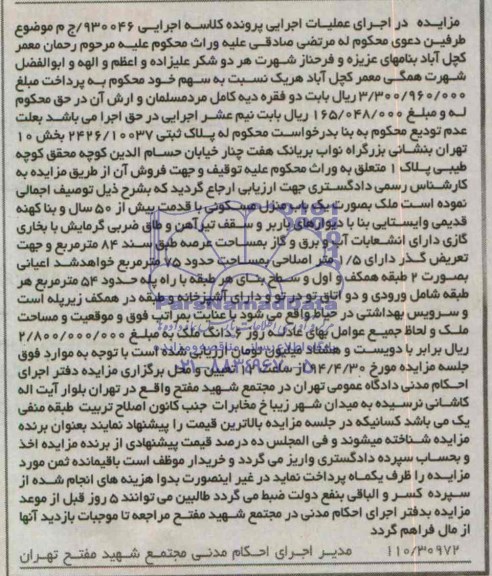 مزایده در اجرای عملیات اجرایی پرونده کلاسه اجرایی ۹۳۰۰۴۶/ج م موضوع
طرفین دعوی محکوم له مرتضی صادقی علیه وراث محکوم علیه مرحوم رحمان معمر
کچل آباد بنامهای عزیزه و فرحناز شهرت هر دو شکر علیزاده و اعظم و الهه و ابوالفضل
شهرت همگی معمر کچل آباد هریک نسبت به سهم خود محکوم به پرداخت مبلغ
۳/۳۰۰/۹۶۰/۰۰۰ ریال بابت دو فقره دیه کامل مردمسلمان و ارش آن در حق محکوم
له و مبلغ ۱۶۵/۰۴۸/۰۰۰ ریال بابت نیم عشر اجرایی در حق اجرا می باشد بعلت
عدم تودیع محکوم به بنا بدرخواست محکوم له پلاک ثبتی ۲۴۲۶/۱۰۰۳۷ بخش ۱۰
تهران بنشانی بزرگراه نواب بریانک هفت چنار خیابان حسام الدین کوچه محقق کوچه
طیبی پلاک ۱ متعلق به وراث محکوم علیه توقیف و جهت فروش آن از طریق مزایده به
کارشناس رسمی دادگستری جهت ارزیابی ارجاع گردید که بشرح ذیل توصیف اجمالی
نموده است ملک بصورت یک باب منزل مسکونی با قدمت بیش از ۵۰ سال و بنا کهنه
قدیمی وایستایی بنا با دیوارهای باربر و سقف تیرآهن و طاق ضربی گرمایش با بخاری
گازی دارای انشعابات آب و برق و گاز بمساحت عرصه طبق سند ۸۴ مترمربع و جهت
تعریض گذر دارای ۸/۵ متر اصلاحی بمساحت حدود ۷۵ مترمربع خواهدشد اعیانی
بصورت ۲ طبقه همکف و اول و سطح بنای هر طبقه با راه پله حدود ۵۴ مترمربع هر
طبقه شامل ورودی و دو اتاق تو در تو و دارای آشپزخانه و طبقه در همکف زیرپله است
و سرویس بهداشتی در حیاط واقع می شود با عنایت بمراتب فوق و موقعیت و مساحت
ملک و لحاظ جمیع عوامل بهای عادله روز ۶ دانگ ملک به مبلغ ۲/۸۰۰/۰۰۰/۰۰۰
ریال برابر با دویست و هشتاد میلیون تومان ارزیابی شده است با توجه به موارد فوق
جلسه مزایده مورخ ۹۴/۴/۳۰ از ساعت تعیین و محل برگزاری مزایده دفتر اجرای
احکام مدنی دادگاه عمومی تهران در مجتمع شهید مفتح واقع در تهران بلوار آیت اله
کاشانی نرسیده به میدان شهر زیبا خ مخابرات جنب کانون اصلاح تربیت طبقه منفی
یک می باشد کسانیکه در جلسه مزایده بالاترین قیمت را پیشنهاد نمایند بعنوان برنده
مزایده شناخته میشوند و فی المجلس ده درصد قیمت پیشنهادی از برنده مزایده اخذ
و بحساب سپرده دادگستری واریز می گردد و خریدار موظف است باقیمانده ثمن مورد
مزایده را ظرف یکماه پرداخت نماید در غیر اینصورت بدوا هزینه های انجام شده از
سپرده کسر و الباقی بنفع دولت ضبط می گردد طالبین می توانند ۵ روز قبل از موعد
مزایده بدفتر اجرای احکام مدنی در مجتمع شهید مفتح مراجعه تا موجبات بازدید آنها
از مال فراهم گردد
۱۱۰/۳۰۹۷۲ مدیر اجرای احکام مدنی مجتمع شهید مفتح تهران